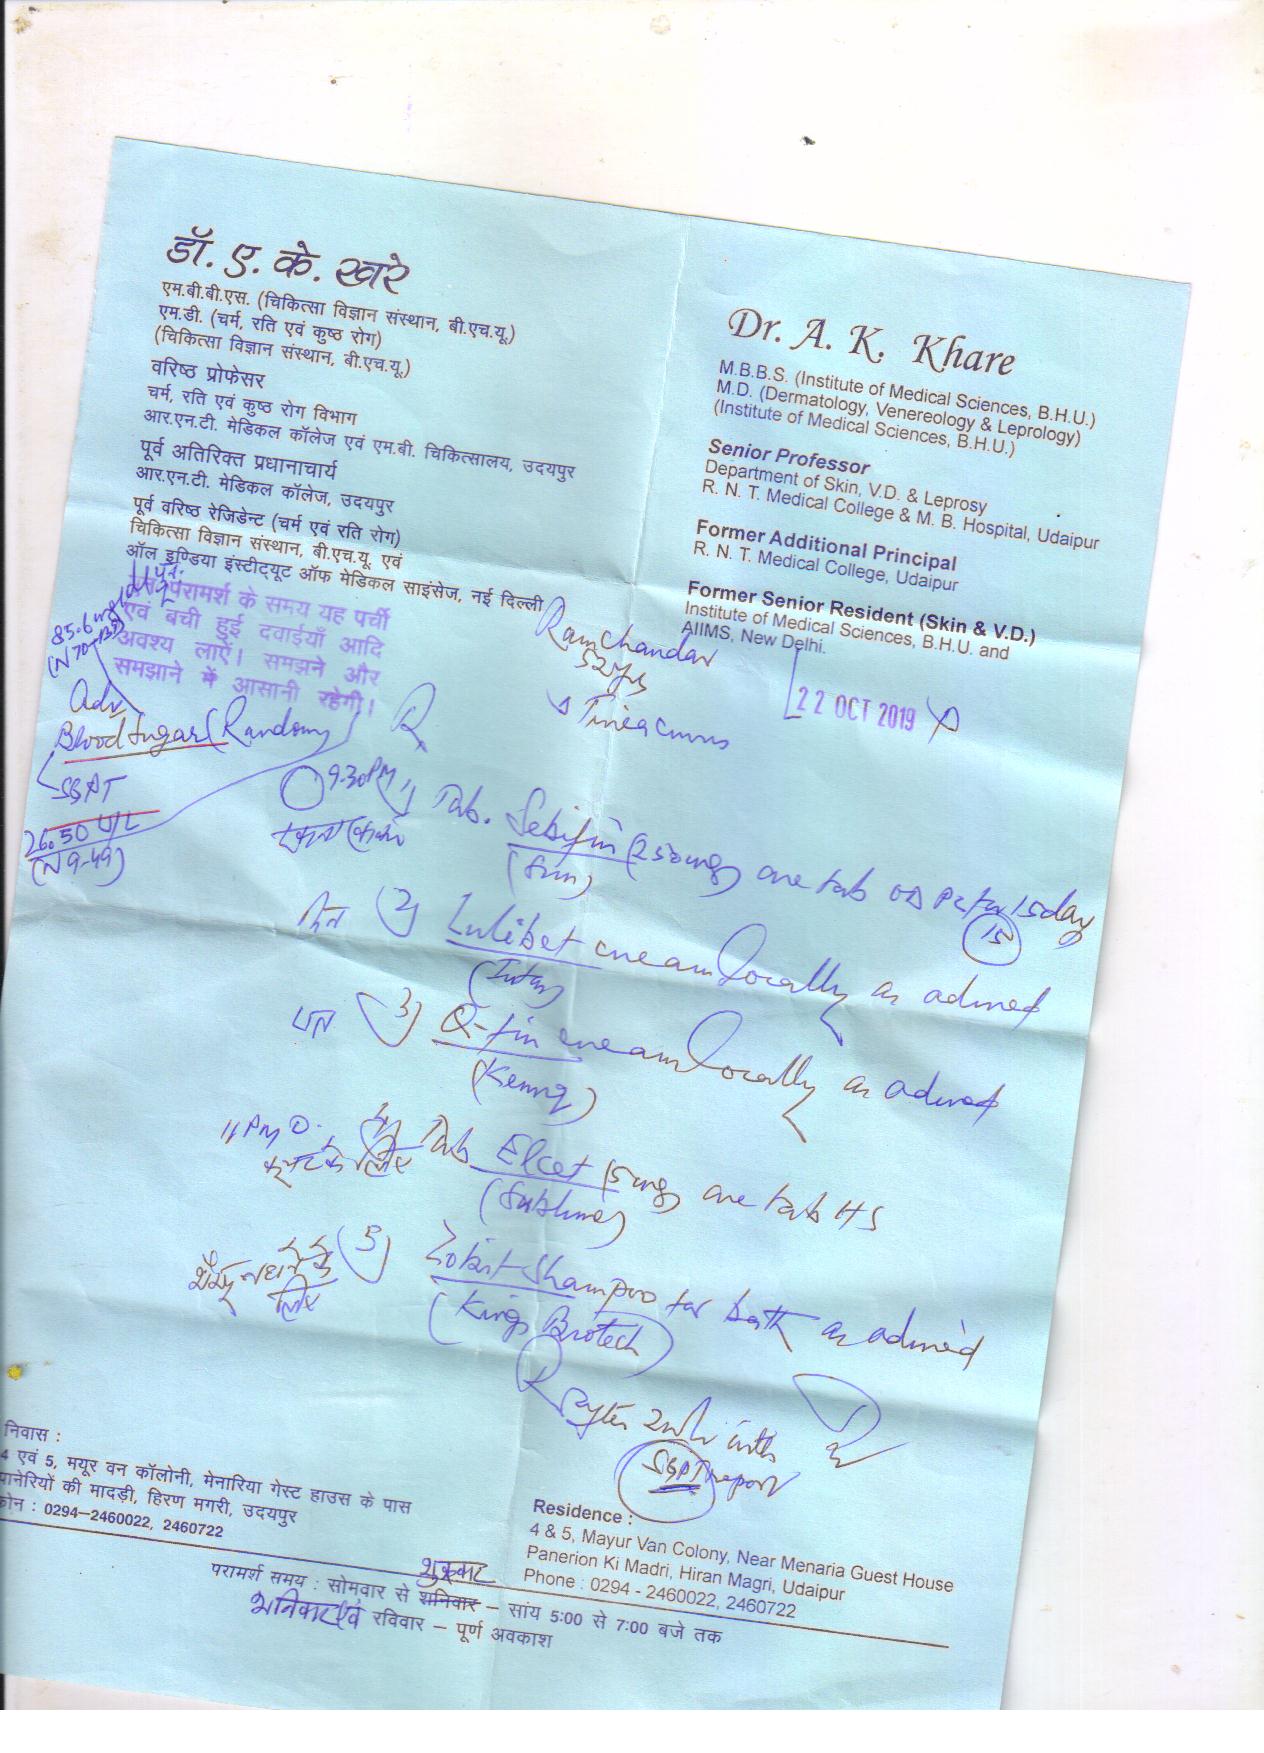 डॉ. ए. के. खरे
एम.बी.बी.एस. (चिकित्सा विज्ञान संस्थान, बी.एच.यू.)
एम.डी. (चर्म, रति एवं कुष्ठ रोग)
(चिकित्सा विज्ञान संस्थान, बी.एच.यू.)
वरिष्ठ प्रोफेसर
चर्म, रति एवं कुष्ठ रोग विभाग
आर.एन.टी. मेडिकल कॉलेज एवं एम.बी. चिकित्सालय, उदयपुर
पूर्व अतिरिक्त प्रधानाचार्य
आर.एन.टी. मेडिकल कॉलेज, उदयपुर
पूर्व वरिष्ठ रेजिडेन्ट (चर्म एवं रति रोग)
चिकित्सा विज्ञान संस्थान, बी.एच.यू. एवं
ऑल इण्डिया इंस्टीट्यूट ऑफ मेडिकल साइंसेज, नई दिल्ली
Dr. A. K. Khare
M.B.B.S. (Institute of Medical Sciences, B.H.U.)
M.D. (Dermatology, Venereology & Leprology)
(Institute of Medical Sciences, B.H.U.)
Senior Professor
Department of Skin, V.D. & Leprosy
R. N. T. Medical College & M. B. Hospital, Udaipur
Former Additional Principal
R. N. T. Medical College, Udaipur
Former Senior Resident (Skin & V.D.)
Institute of Medical Sciences, B.H.U. and
AIIMS, New Delhi.
परामर्श के समय यह पर्ची
एवं बची हुई दवाईयाँ आदि
अवश्य लाऐं। समझने और
समझाने में आसानी रहेगी।
85.6 mg/dl
(N 70-135)
Adv
Blood Sugar (Random)
SGPT
26.50 U/L
(N 9-49)
Ramchandar
52 yrs
Tinea Cruris
22 OCT 2019
9.30PM 1) Tab. Sebifin (250mg) one tab OD PC for 15 day
(Sun) 15
दिन 2) Lulibet cream locally as advised
(Intas)
रात 3) Q-fin cream locally as advised
11 PM 4) Tab Elcet (5mg) one tab HS
के लिए (Sublime)
शैम्पू नहाने के लिए 5) Shampoo for bath as advised
(King Biotech)
R after 2 wk with
SGPT report
निवास :
4 एवं 5, मयूर वन कॉलोनी, मेनारिया गेस्ट हाउस के पास
पानेरियों की मादड़ी, हिरण मगरी, उदयपुर
फोन : 0294-2460022, 2460722
Residence :
4 & 5, Mayur Van Colony, Near Menaria Guest House
Panerion Ki Madri, Hiran Magri, Udaipur
Phone : 0294 - 2460022, 2460722
शुक्रवार
परामर्श समय : सोमवार से शनिवार – सांय 5:00 से 7:00 बजे तक
शनिवार एवं रविवार – पूर्ण अवकाश